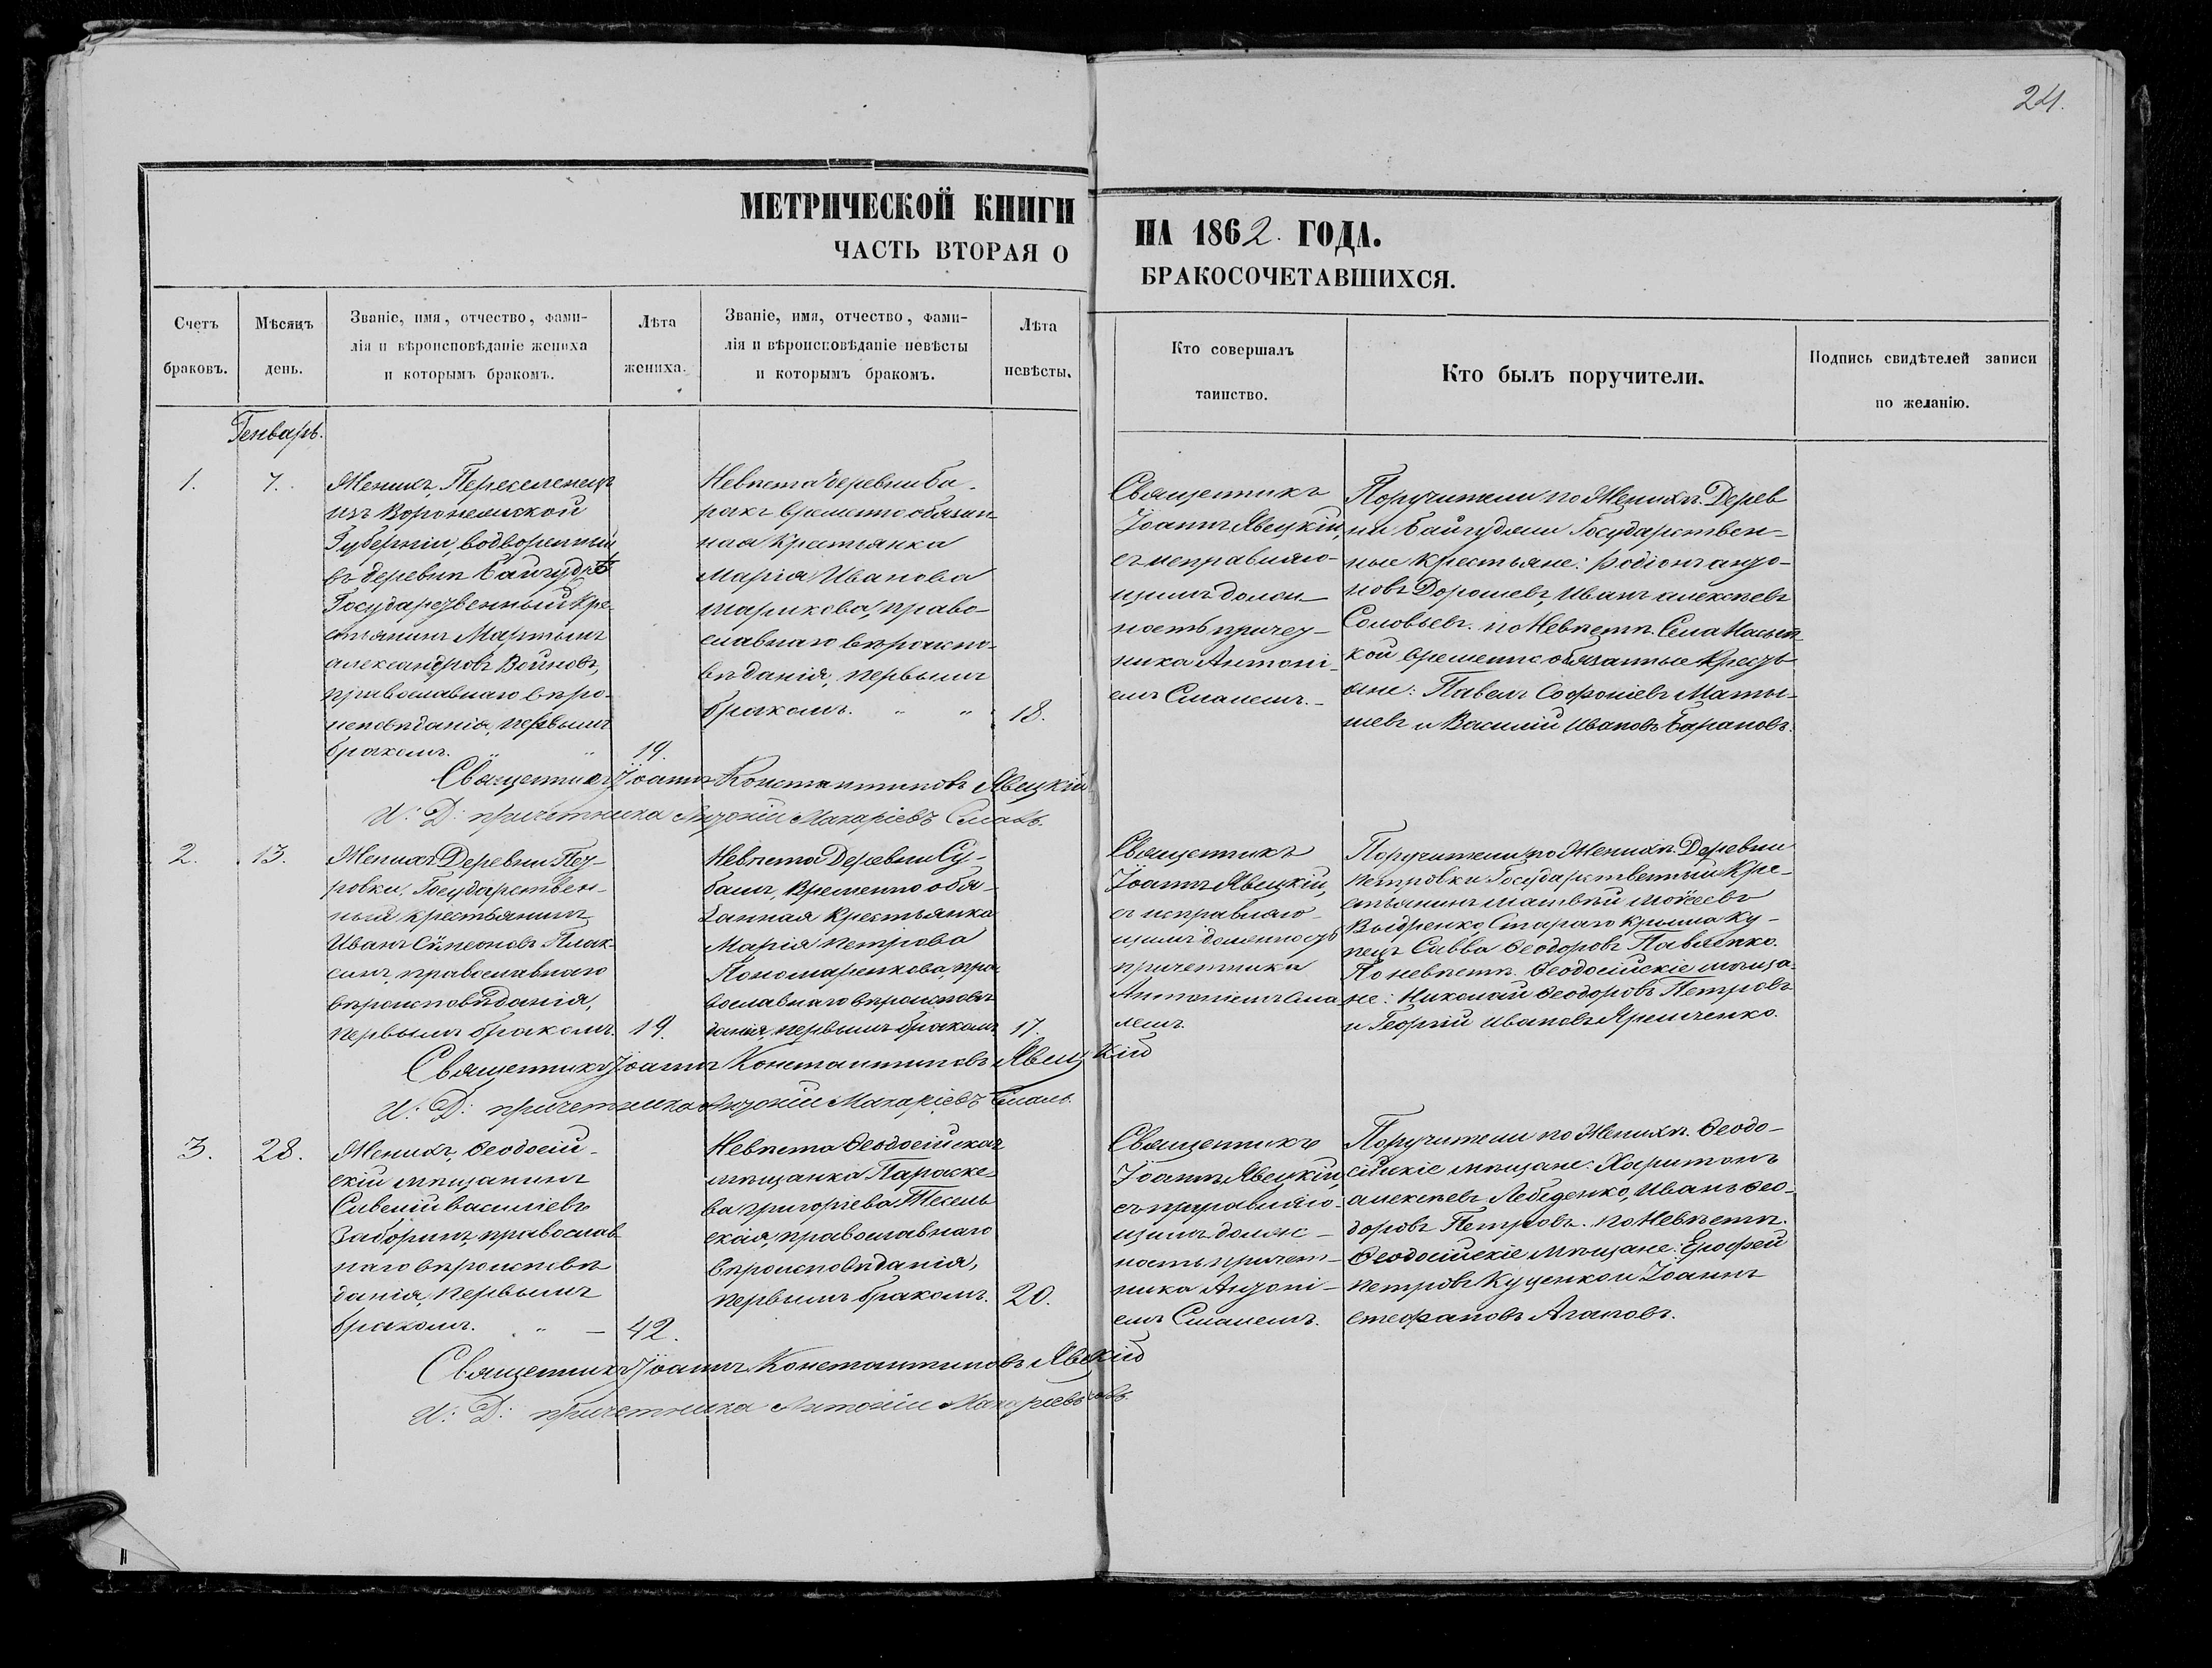 24.
МЕТРИЧЕСКОЙ КНИГИ
НА 1862. ГОДА.
ЧАСТЬ ВТОРАЯ О
БРАКОСОЧЕТАВШИХСЯ.
Счетъ
браковъ.
Мѣсяцъ
день.
Званіе, имя, отчество, фами-
лія и вѣроисповѣданіе жениха
и которымъ бракомъ.
Лѣта
жениха.
Званіе, имя, отчество, фами-
лія и вѣроисповѣданіе невѣсты
и которымъ бракомъ.
Лѣта
невѣсты.
Кто совершалъ
таинство.
Кто былъ поручители.
Подпись свидѣтелей записи
по желанію.
Генварь.
1.
7.
Женихъ, Переселенецъ
изъ Воронежской
Губерніи, водворенный
въ деревни
Государственный Кре-
стьянинъ Мартынъ
александровъ Войновъ,
православнаго вѣро-
исповѣданія, первымъ
бракомъ. " "
19.
Невѣста деревни Ба-
ракъ временно обязан-
ная Крестьянка
Марія Иванова
Шарикова, право-
славнаго вѣроиспо-
вѣданія, первымъ
бракомъ. " "
18.
Священникъ
Іоаннъ Явецкій,
съ исправляю-
щимъ долж-
ность причет-
ника Антоні-
емъ Смалемъ.-
Поручители по Женихѣ. Дерев
ни Государствен-
ные крестьяне: Родіонъ анто-
новъ Дорошевъ, Иванъ алексѣевъ
Соловьевъ. по Невѣстѣ. Села Насып-
кой временно обязанные Кресть-
яне: Павелъ Софоніевъ Маты-
шевъ и Василій Ивановъ Барановъ.
Священникъ Іоаннъ Константиновъ Явецкій
И: Д: причетника Антоній Макаріевъ Смаль.
2.
13.
Женихъ Деревни Пет-
ровки, Государствен-
ный крестьянинъ
Иванъ Сѵмеоновъ Плак-
синъ, православнаго
вѣроисповѣданія,
первымъ бракомъ.
19.
Невѣста Деревни Су-
башъ, Временно обя-
занная Крестьянка
Марія петрова
Пономаренкова, пра-
вославнаго вѣроисповѣ
данія, первымъ бракомъ
17.
Священникъ
Іоаннъ Явецкій,
съ исправляю-
щимъ должность
причетника
Антоніемъ Сма
лемъ.
Поручители по Женихѣ. Деревни
петровки Государственный Кре-
стьянинъ матвѣй моѵсеевъ
Выдренко, Стараго Крыма Ку-
пецъ Савва Ѳеодоровъ Павленко.
По невѣстѣ. Ѳеодосійскіе мѣща-
не: Николай Ѳеодоровъ Петровъ
и Георгій Ивановъ Яременко.
Священникъ Іоаннъ Константиновъ Явецкій
И: Д: причетника Антоній Макаріевъ Смаль.
3.
28.
Женихъ, Ѳеодосій-
скій мѣщанинъ
Савелій василіевъ
Заборинъ, православ
наго вѣроисповѣ
данія, первымъ
бракомъ. " -
42.
Невѣста Ѳеодосійская
мѣщанка Параске-
ва григоріева
ская, православнаго
вѣроисповѣданія,
первымъ бракомъ.
20.
Священникъ
Іоаннъ Явецкій,
съ исправляю-
щимъ долж-
ность причет-
ника Антоні-
емъ Смалемъ.
Поручители по Женихѣ. Ѳеодо-
сійскіе мѣщане: Харитонъ
алексѣевъ Лебеденко, Иванъ Ѳео-
доровъ Петровъ. по Невѣстѣ.
Ѳеодосійскіе мѣщане: Ерофей
петровъ Куценко и Іоаннъ
стефановъ Агаповъ.
Священникъ Іоаннъ Константиновъ Явецкій
И: Д: причетника Антоній Макаріевъ Смаль.